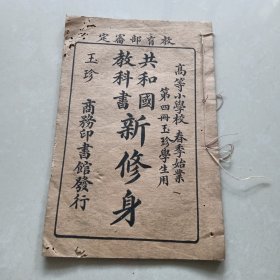 教育部審定
高等小學校 春季始業
第四冊 玉珍 學生用
共和國
教科書
新修身
玉珍
商務印書館發行